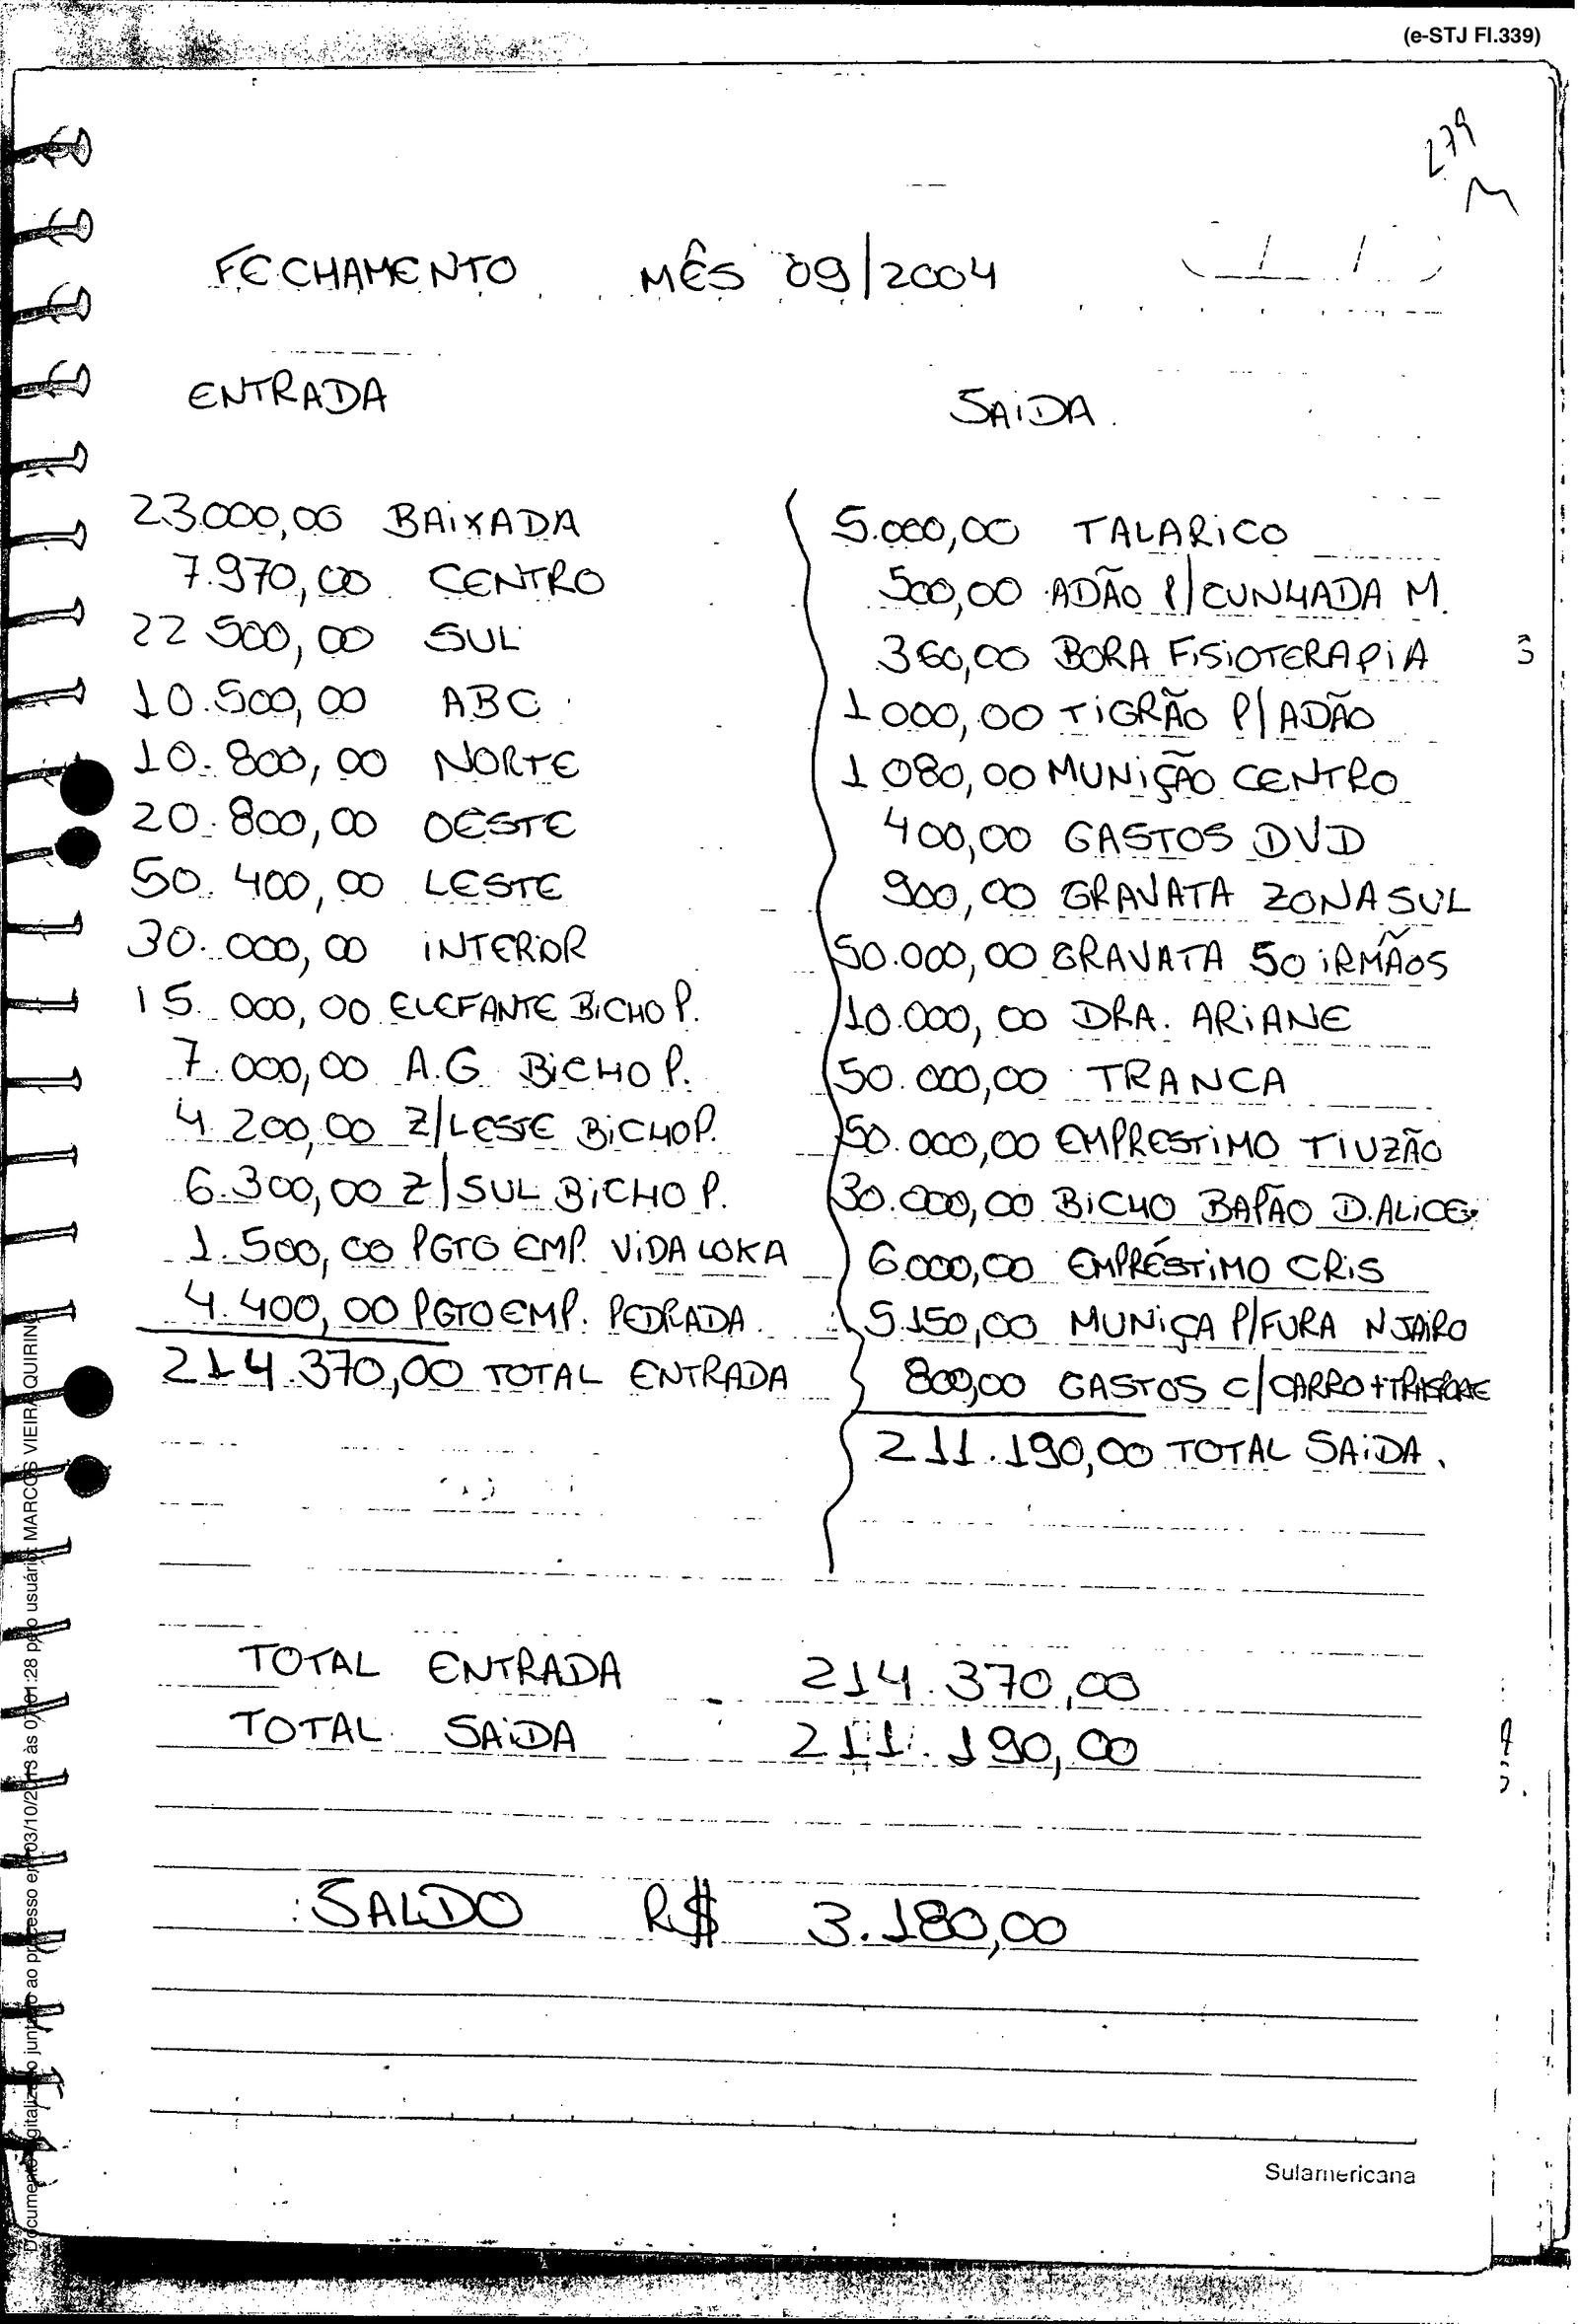 (e-STJ Fl.339)
279
FECHAMENTO MÊS 09/2004
ENTRADA
23.000,00 BAIXADA
7.970,00 CENTRO
22 500,00 SUL
10.500,00 ABC
10.800,00 NORTE
20.800,00 OESTE
50.400,00 LESTE
30.000,00 INTERIOR
15.000,00 ELEFANTE BICHO P.
7.000,00 A.G BICHO P.
4.200,00 Z/LESTE BICHO P.
6.300,00 Z/SUL BICHO P.
1.500,00 PGTO EMP. VIDA LOKA
4.400,00 PGTO EMP. PEDRADA
214.370,00 TOTAL ENTRADA
SAIDA.
5.000,00 TALARICO
500,00 ADÃO P/CUNHADA M.
360,00 BORA FISIOTERAPIA
1000,00 TIGRÃO P/ADÃO
1080,00 MUNIÇÃO CENTRO
400,00 GASTOS DVD
900,00 GRAVATA ZONA SUL
50.000,00 GRAVATA 50 IRMÃOS
10.000,00 DRA. ARIANE
50.000,00 TRANCA
50.000,00 EMPRESTIMO TIUZÃO
30.000,00 BICHO BAPÃO D.ALICE
6.000,00 EMPRÉSTIMO CRIS
5.150,00 MUNIÇA P/FURA N JAIRO
800,00 GASTOS C/CARRO+
211.190,00 TOTAL SAIDA.
TOTAL ENTRADA 214.370,00
TOTAL SAIDA 211.190,00
SALDO R$ 3.180,00
Sulamericana
Documento digitalizado juntado ao processo em 03/10/2013 às 07:01:28 pelo usuário: MARCOS VIEIRA QUIRINO